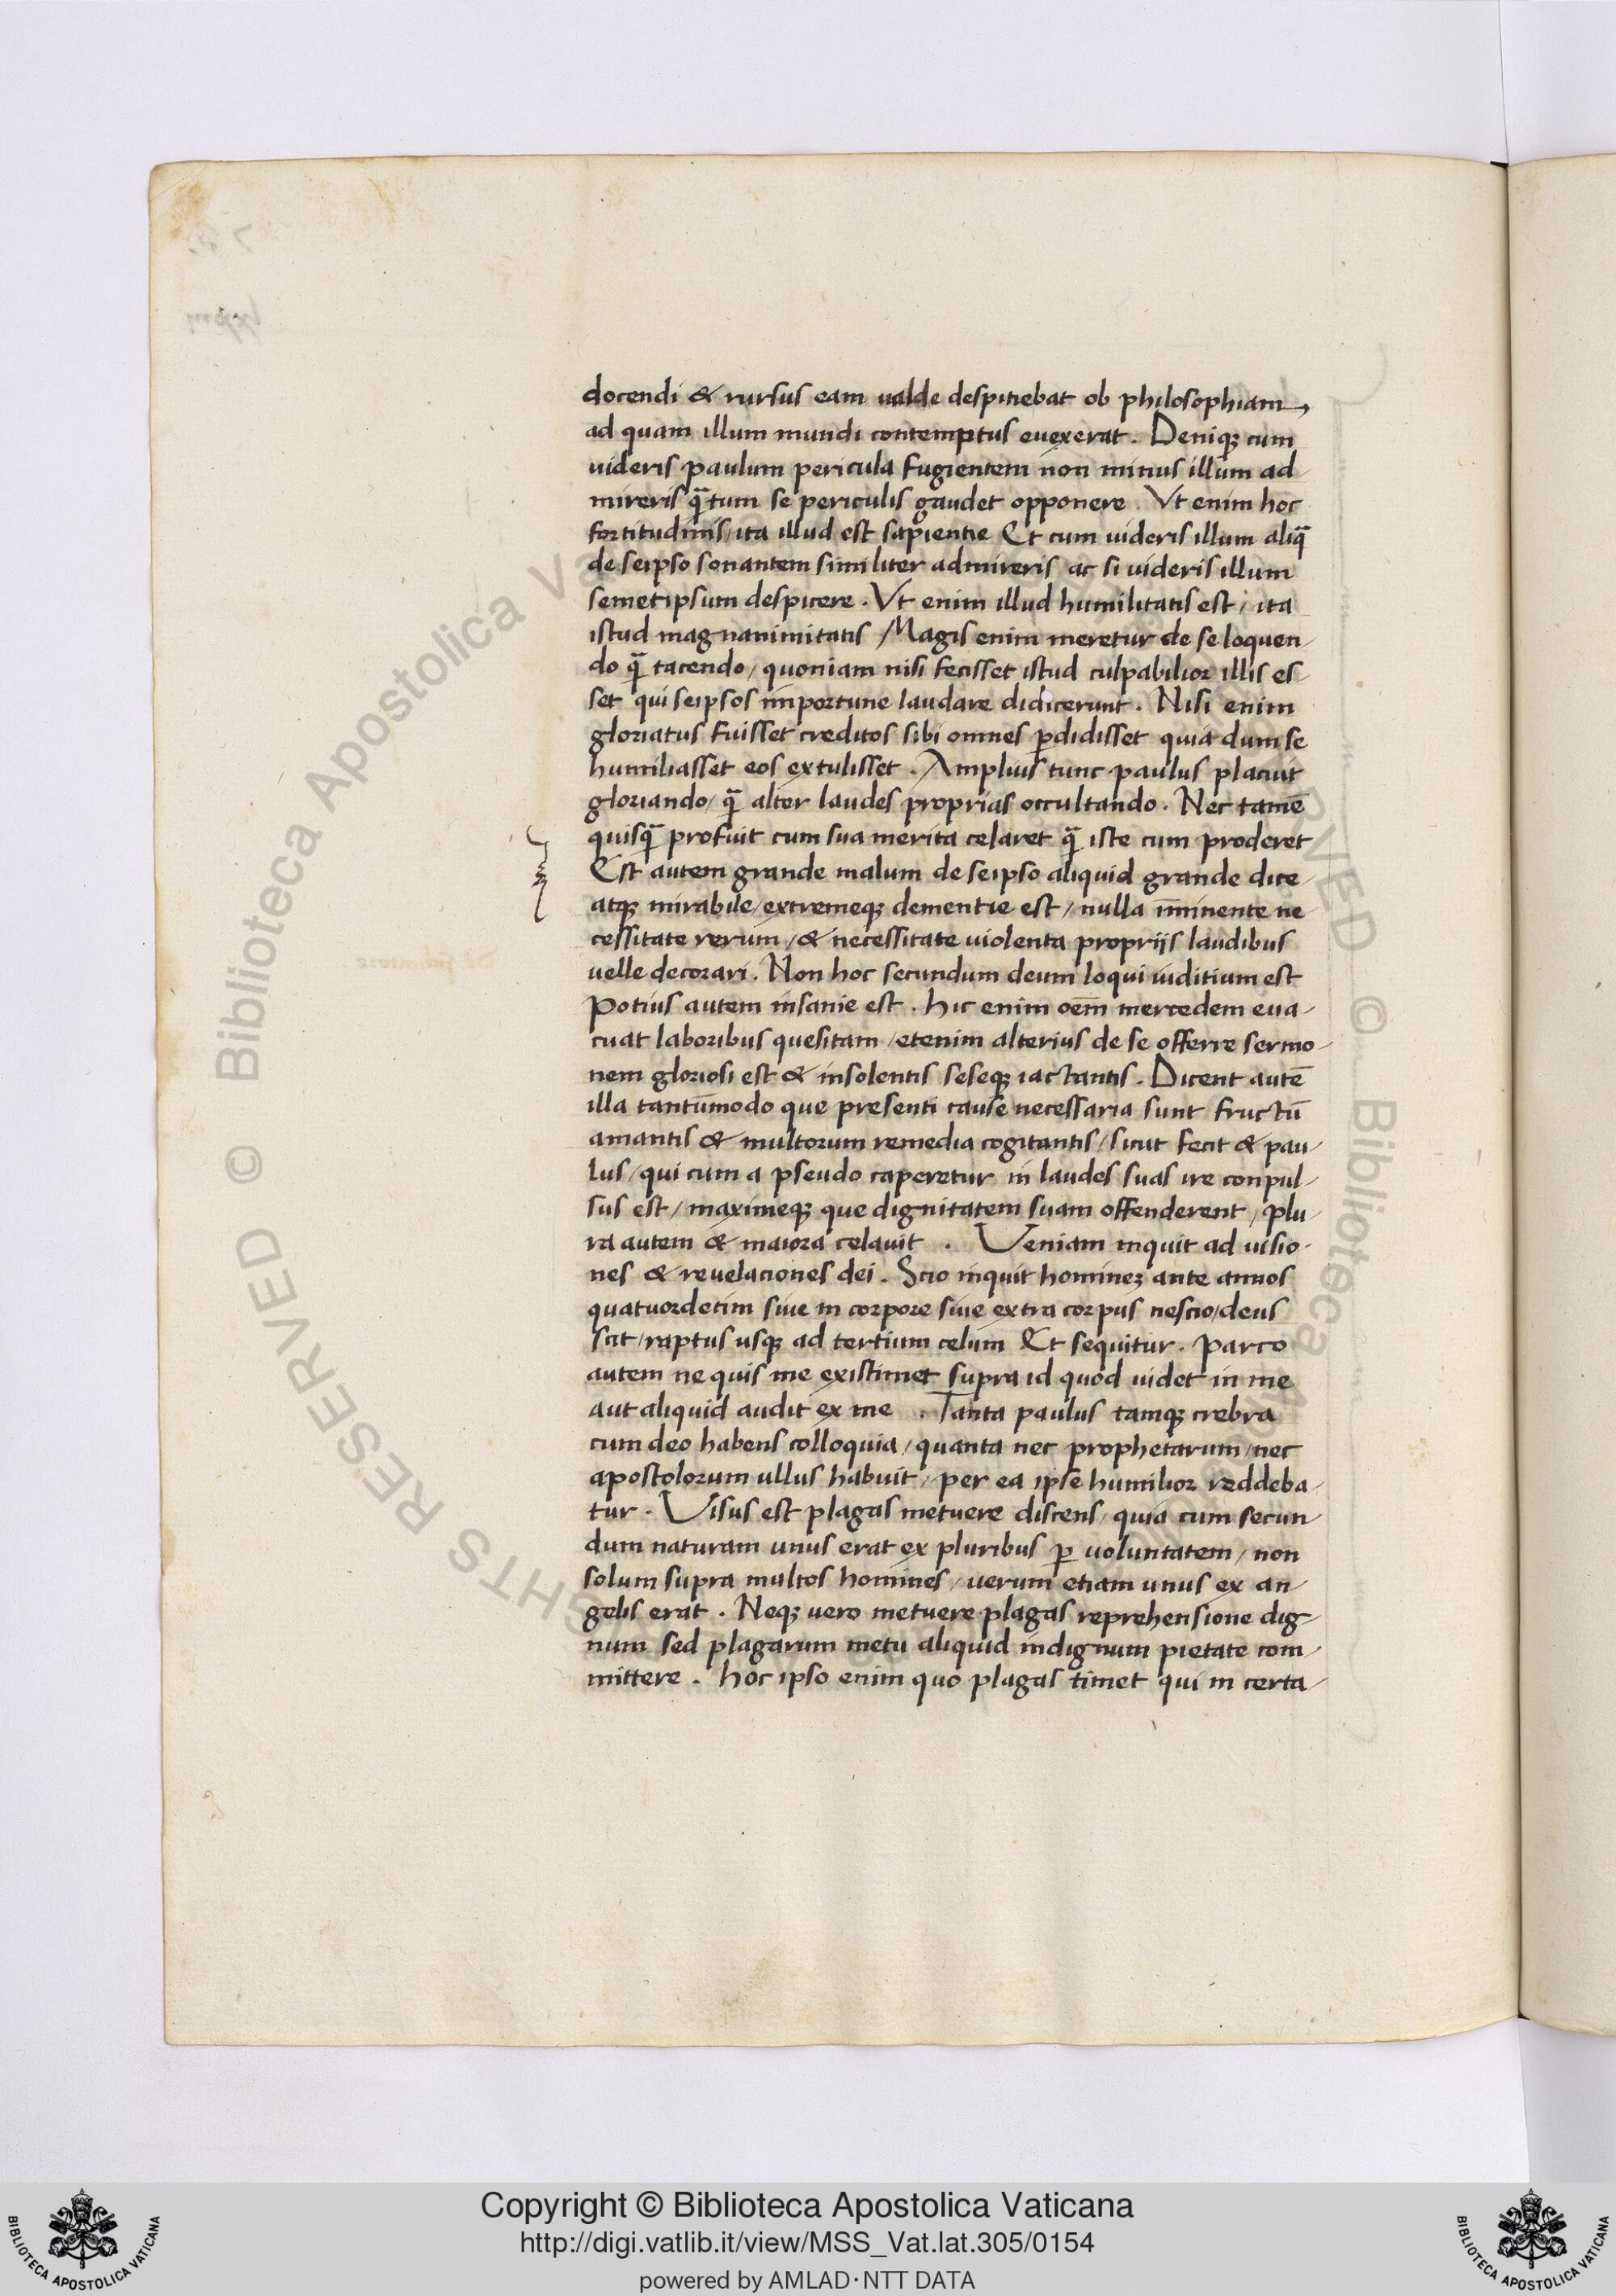 docendi & rursus eam ualde despitiebat ob philosophiam,
ad quam illum mundi contemptus euexerat. Deniqꝫ cum
uideris paulum pericula fugientem non minus illum ad-
mireris qᷓtum se periculis gaudet opponere. Vt enim hoc
fortitudinis/ita illud est sapientie Et cum uideris illum aliqᷓ
de seipso sonantem similiter admireris ac si uideris illum
semetipsum despicere. Vt enim illud humilitatis est/ita
istud magnanimitatis Magis enim meretur de se loquen-
do qᷓ tacendo/quoniam nisi fecisset istud culpabilior illis es-
set qui seipsos importune laudare didicerunt. Nisi enim
gloriatus fuisset creditos sibi omnes ꝑdidisset quia dum se
humiliasset eos extulisset. Amplius tunc paulus placuit
gloriando/qᷓ alter laudes proprias occultando. Nec tamē
quisqᷓ profuit cum sua merita celaret qᷓ iste cum proderet
Est autem grande malum de seipso aliquid grande dice-
atqꝫ mirabile/extremeqꝫ dementie est/nulla īminente ne-
cessitate rerum/& necessitate uiolenta proprijs laudibus
uelle decorari. Non hoc secundum deum loqui iuditium est
Potius autem insanie est. hic enim oēm mercedem eua-
cuat laboribus quesitam/etenim alterius de se offerre sermo-
nem gloriosi est & insolentis seseqꝫ iactantis. Dicent autē
illa tantūmodo que presenti cause necessaria sunt fructū
amantis & multorum remedia cogitantis/sicut fecit & pau-
lus/qui cum a pseudo caperetur in laudes suas ire conpul-
sus est/maximeqꝫ que dignitatem suam offenderent/plu-
ra autem & maiora celauit . Veniam inquit ad uisio-
nes & reuelaciones dei. Scio inquit hominez ante annos
quatuordecim siue in corpore siue extra corpus nescio/deus
scit/raptus usqꝫ ad tertium celum Et sequitur. parco
autem ne quis me existimet supra id quod uidet in me
aut aliquid audit ex me . Tanta paulus tamqꝫ crebra
cum deo habens colloquia/quanta nec prophetarum/nec
apostolorum ullus habuit/per ea ipse humilior reddeba-
tur. Visus est plagas metuere discens/quia cum secun-
dum naturam unus erat ex pluribus ꝑ uoluntatem/non
solum supra multos homines/uerum etiam unus ex an-
gelis erat. Neqꝫ uero metuere plagas reprehensione dig-
num sed plagarum metu aliquid indignum pietate com-
mittere. hoc ipso enim quo plagas timet qui in certa-
Copyright © Biblioteca Apostolica Vaticana
http://digi.vatlib.it/view/MSS_Vat.lat.305/0154
powered by AMLAD·NTT DATA